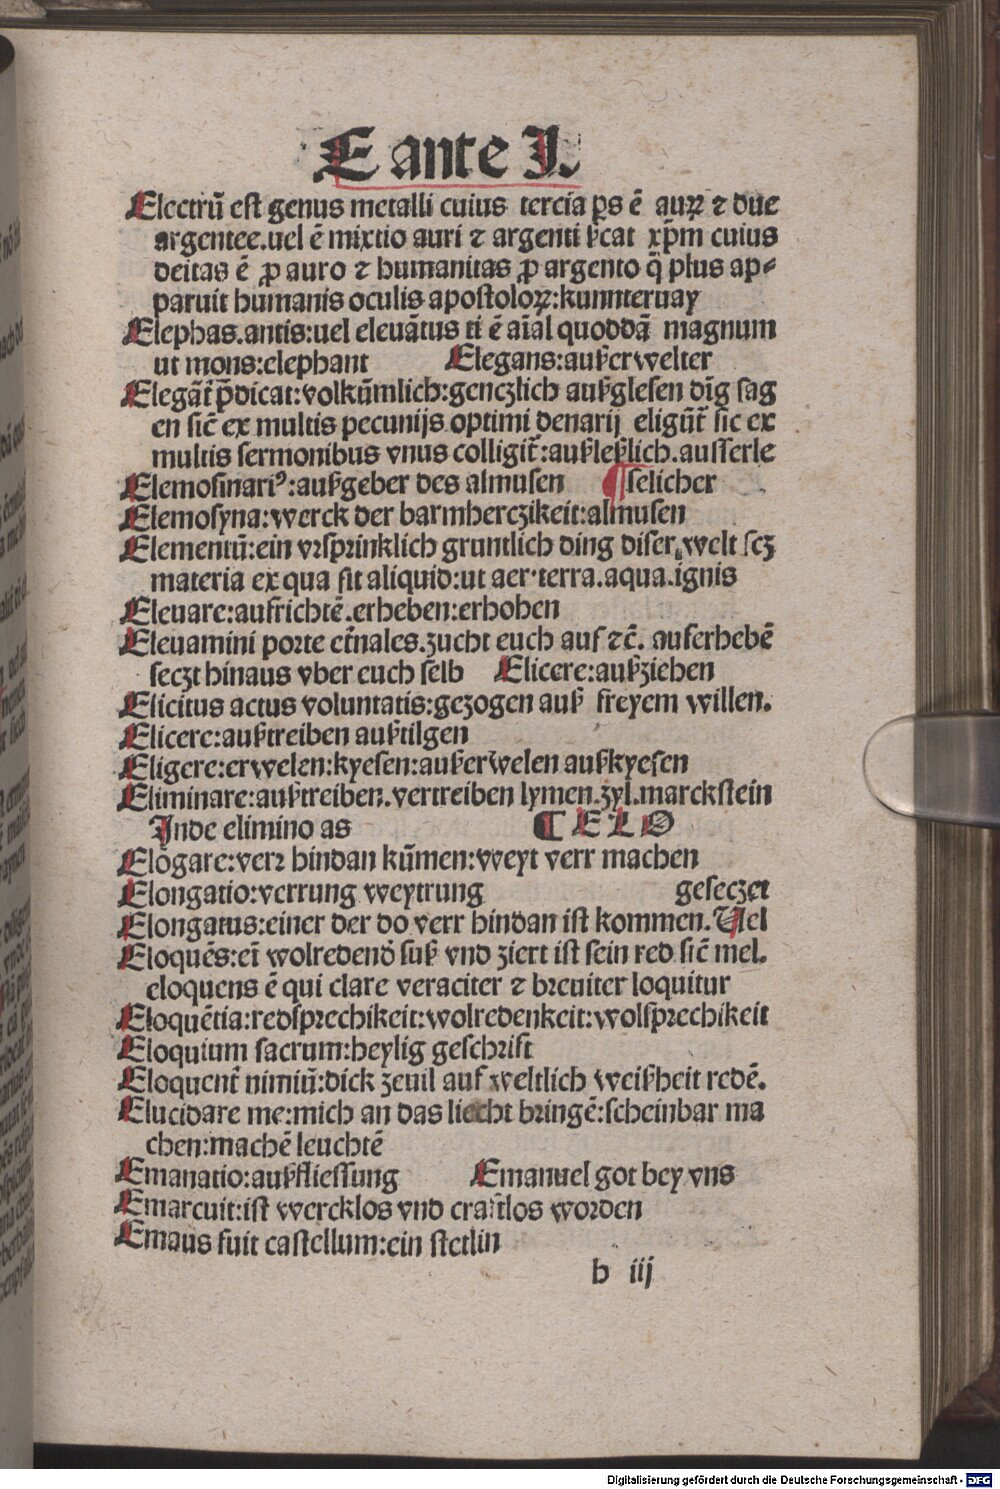 E ante I.
Electrū est genus metalli cuius tercia ꝑs ē auꝝ ⁊ due
argentee.uel ē mixtio auri ⁊ argenti xp̄m cuius
deitas ē ꝓ auro ⁊ humanitas ꝓ argento q̄ plus ap⸗
paruit humanis oculis apostoloꝝ:kunnteruay
Elephas.antis:uel eleuātus ti ē aīal quoddā magnum
ut mons:elephant Elegans:außerwelter
Elegāt̄ p̄dicat:volkūmlich:genczlich außglesen dīg sag
en sic̄ ex multis pecunijs optimi denarij eligūt̄ sic ex
multis sermonibus vnus colligit̄:außleßlich.ausserle
Elemosinariꝰ:außgeber des almusen ¶selicher
Elemosyna:werck der barmherczikeit:almusen
Elementū:ein vrsprinklich gruntlich ding diser welt scz
materia ex qua sit aliquid:ut aer.terra.aqua.ignis
Eleuare:aufrichtē.erheben:erhohen
Eleuamini porte et̄nales.zucht euch auf ⁊c̄. auferhebē
seczt hinaus vber euch selb Elicere:außziehen
Elicitus actus voluntatis:gezogen auß freyem willen.
Elicere:außtreiben außtilgen
Eligere:erwelen:kyesen:außerwelen außkyesen
Eliminare:außtreiben.vertreiben lymen.zyl.marckstein
Inde elimino as ¶ E L O
Elōgare:verr hindan kūmen:weyt verr machen
Elongatio:verrung weytrung geseczet
Elongatus:einer der do verr hindan ist kommen.Uel
Eloquēs:eī wolredend suß vnd ziert ist sein red sic̄ mel.
eloquens ē qui clare veraciter ⁊ breuiter loquitur
Eloquētia:redsprechikeit:wolredenkeit:wolsprechikeit
Eloquium sacrum:heylig geschrift
Eloquent̄ nimiū:dick zeuil auf weltlich weißheit redē.
Elucidare me:mich an das liecht bringē:scheinbar ma
chen:machē leuchtē
Emanatio:außfliessung Emanuel got bey vns
Emarcuit:ist wercklos vnd craftlos worden
Emaus fuit castellum:ein stetlin
b iij
Digitalisierung gefördert durch die Deutsche Forschungsgemeinschaft - DFG